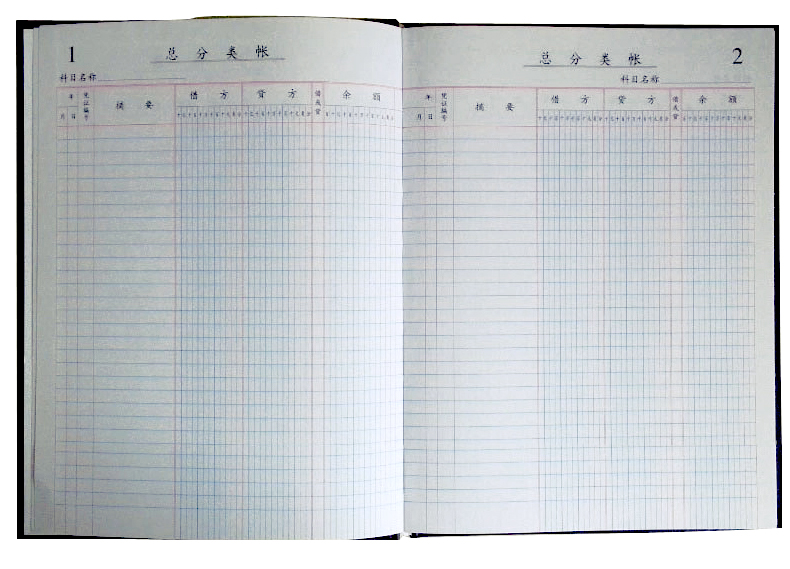 1
总 分 类 帐
科目名称
年 凭证编号 摘 要 借 方 贷 方 借或贷 余 额
月 日
总 分 类 帐
2
科目名称
年 凭证编号 摘 要 借 方 贷 方 借或贷 余 额
月 日